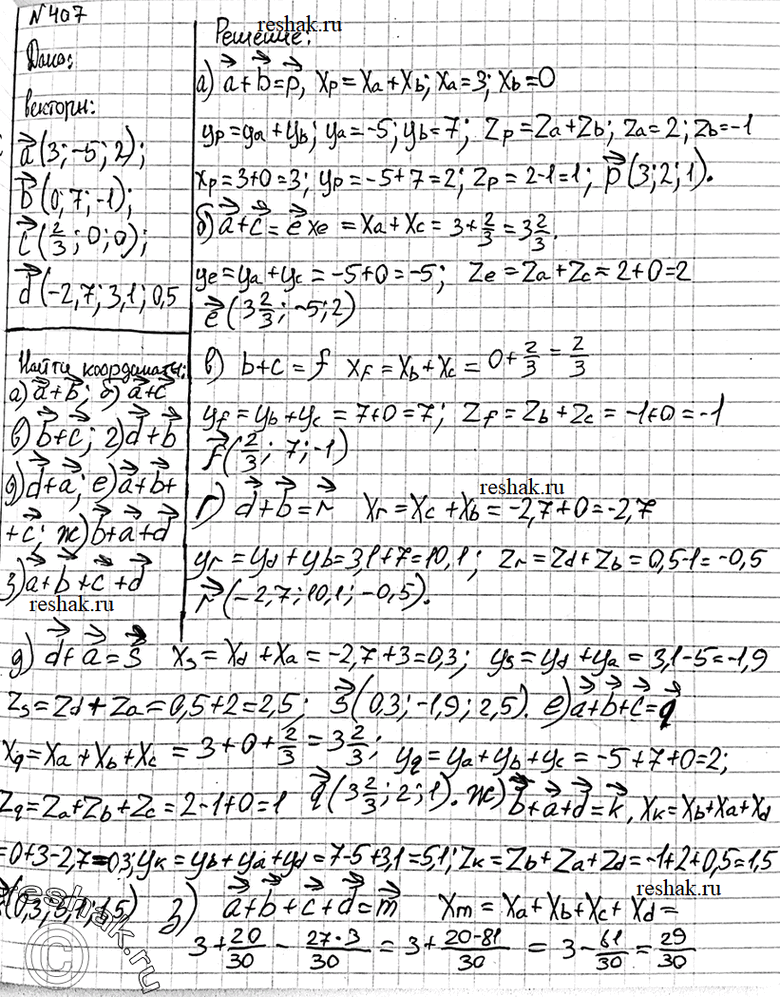 N407
Дано:
векторы:
a→(3;-5;2);
b→(0;7;-1);
c→(2/3;0;0);
d→(-2,7;3,1;0,5
Найти координаты:
а) a→+b→; б) a→+c→
в) b→+c→; г) d→+b→
д) d→+a→; е) a→+b→+
+c→; ж) b→+a→+d→
з) a→+b→+c→+d→
reshak.ru
reshak.ru
Решение:
а) a→+b→=p→, Xp=Xa+Xb; Xa=3; Xb=0
yp=ya+yb; ya=-5; yb=7; Zp=Za+Zb; Za=2; Zb=-1
Xp=3+0=3; yp=-5+7=2; Zp=2-1=1; p→(3;2;1).
б) a→+c→=e→ Xe=Xa+Xc=3+2/3=3 2/3.
ye=ya+yc=-5+0=-5; Ze=Za+Zc=2+0=2
e→(3 2/3;-5;2)
в) b+c=f Xf=Xb+Xc=0+2/3=2/3
yf=yb+yc=7+0=7; Zf=Zb+Zc=-1+0=-1
f→(2/3;7;-1)
reshak.ru
г) d→+b→=r→ Xr=Xc+Xb=-2,7+0=-2,7
yr=yd+yb=3,1+7=10,1; Zr=Zd+Zb=0,5-1=-0,5
r→(-2,7;10,1;-0,5).
д) d→+a→=s→ Xs=Xd+Xa=-2,7+3=0,3; ys=yd+ya=3,1-5=-1,9
Zs=Zd+Za=0,5+2=2,5; s→(0,3;-1,9;2,5). е) a→+b→+c→=q→
Xq=Xa+Xb+Xc=3+0+2/3=3 2/3; yq=ya+yb+yc=-5+7+0=2;
Zq=Za+Zb+Zc=2-1+0=1 q→(3 2/3;2;1). ж) b→+a→+d→=k→, Xk=Xb+Xa+Xd
=0+3-2,7=0,3; yk=yb+ya+yd=7-5+3,1=5,1; Zk=Zb+Za+Zd=-1+2+0,5=1,5
(0,3;5,1;1,5) з) a→+b→+c→+d→=m→ Xm=Xa+Xb+Xc+Xd=
reshak.ru
3+20/30-27·3/30=3+20-81/30=3-61/30=29/30
reshak.ru
©